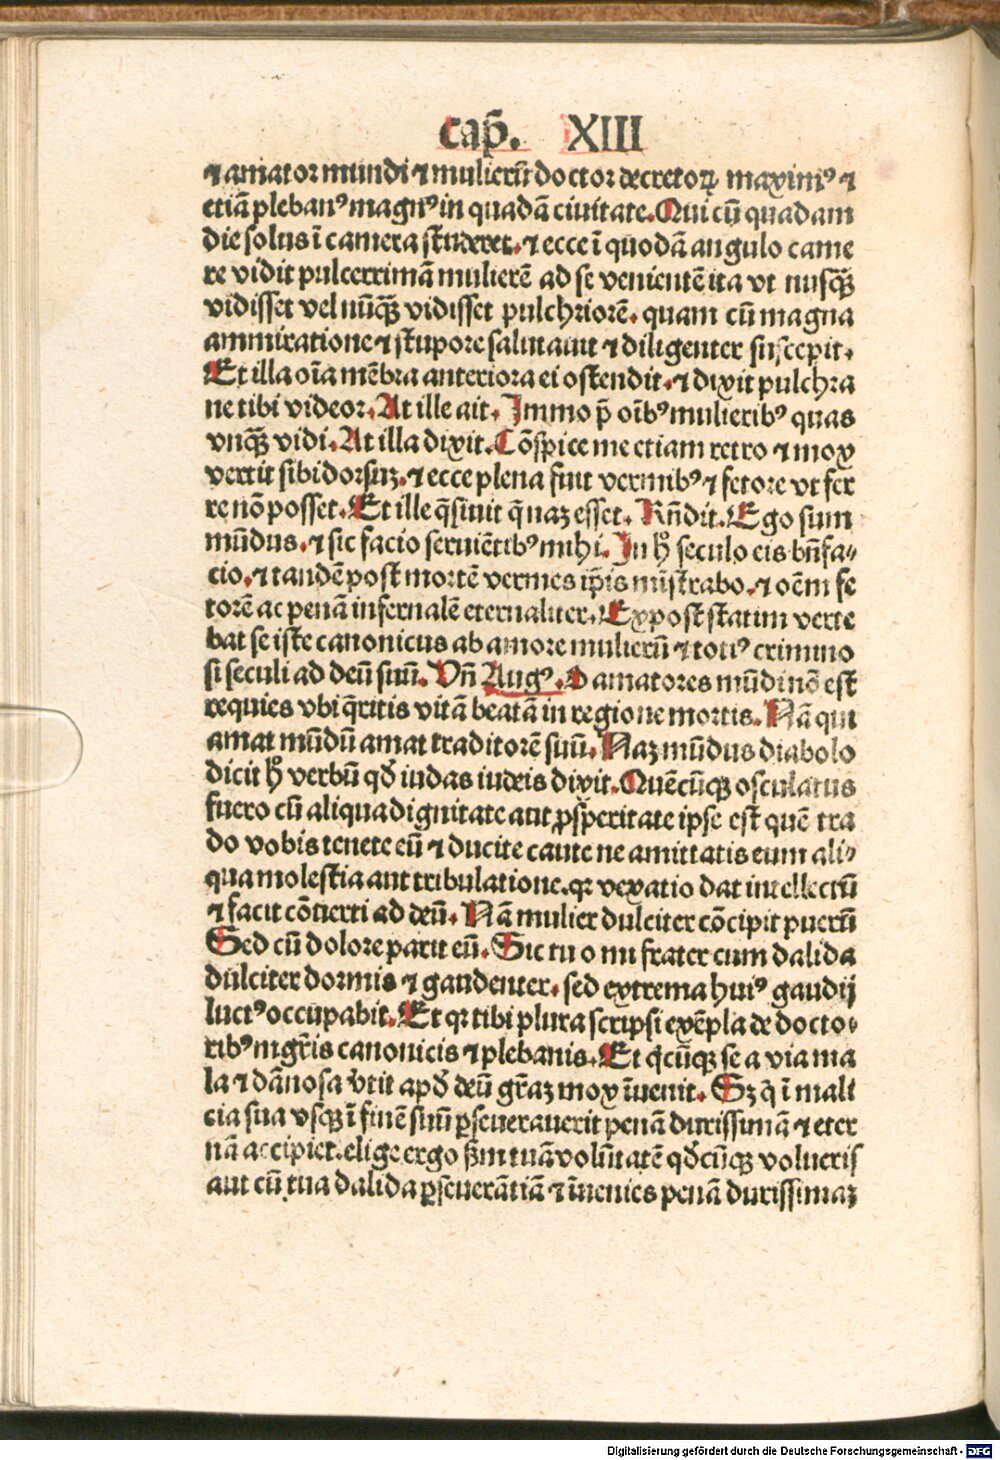 Cap̄. XIII
⁊ amator mundi ⁊ mulierū doctor decretoꝝ maximꝰ ⁊
etiā plebanꝰ magnꝰ in quadā ciuitate. Qui cū quadam
die solus ī camera studeret. ⁊ ecce ī quodā angulo came
re vidit pulcerrimā mulierē ad se venientē ita vt nusꝗ̄
vidisset vel nūꝗ̄ vidisset pulchriorē. quam cū magna
ammiratione ⁊ stupore salutauit ⁊ diligenter suscepit.
Et illa oīa mēbra anteriora ei ostendit. ⁊ dixit pulchra
ne tibi videor. At ille ait. Immo p̄ oībꝰ mulieribꝰ quas
vnꝗ̄ vidi. At illa dixit. Cōspice me etiam retro ⁊ mox
vertit sibi dorsuꝫ. ⁊ ecce plena fuit vermibꝰ ⁊ fetore vt fer
re nō posset. Et ille q̄siuit q̄naꝫ esset. Rn̄dit. Ego sum
mūdus. ⁊ sic facio seruiētibꝰ mihi. In h̄ seculo eis bn̄fa⸗
cio. ⁊ tandē post mortē vermes ip̄is mīstrabo. ⁊ oēm fe
torē ac penā infernalē eternaliter. Ex post statim verte
bat se iste canonicus ab amore mulierū ⁊ totiꝰ crimino
si seculi ad deū suū. Vn̄ Augꝰ. O amatores mūdi nō est
requies vbi q̄ritis vitā beatā in regione mortis. Nā qui
amat mūdū amat traditorē suū. Naꝫ mūdus diabolo
dicit h̄ verbū qd̄ iudas iudeis dixit. Quēcūꝗ osculatus
fuero cū aliqua dignitate aut ꝓsperitate ipse est quē tra
do vobis tenete eū ⁊ ducite caute ne amittatis eum ali⸗
qua molestia aut tribulatione. qꝛ vexatio dat intellectū
⁊ facit cōuerti ad deū. Nā mulier dulciter cōcipit puerū
Sed cū dolore parit eū. Sic tu o mi frater cum dalida
dulciter dormis ⁊ gaudenter. sed extrema huiꝰ gaudij
luctꝰ occupabit. Et qꝛ tibi plura scripsi exēpla de docto⸗
ribꝰ mgr̄is canonicis ⁊ plebanis. Et q̇cūꝗ se a via ma
la ⁊ dānosa v̄tit apd̄ deū gr̄aꝫ mox īuenit. Sꝫ q̇ ī mali
cia sua vsꝗ ī finē suū ꝑseuerauerit penā durissimā ⁊ eter
nā accipiet. elige ergo ẜm tuā volūtatē qd̄cūꝗ volueris
aut cū tua dalida ꝑseuerātiā ⁊ īuenies penā durissimaꝫ
Digitalisierung gefördert durch die Deutsche Forschungsgemeinschaft - DFG